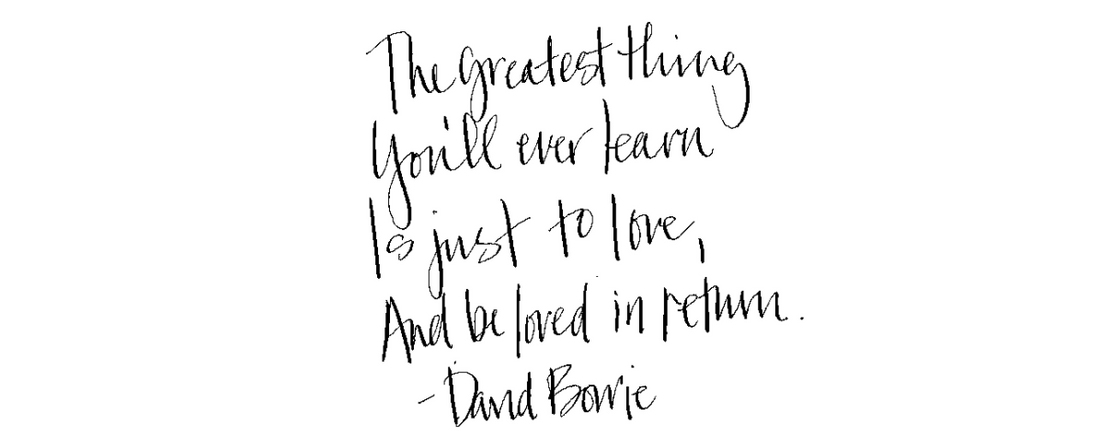 The greatest thing
You'll ever learn
Is just to love,
And be loved in return.
- David Bowie